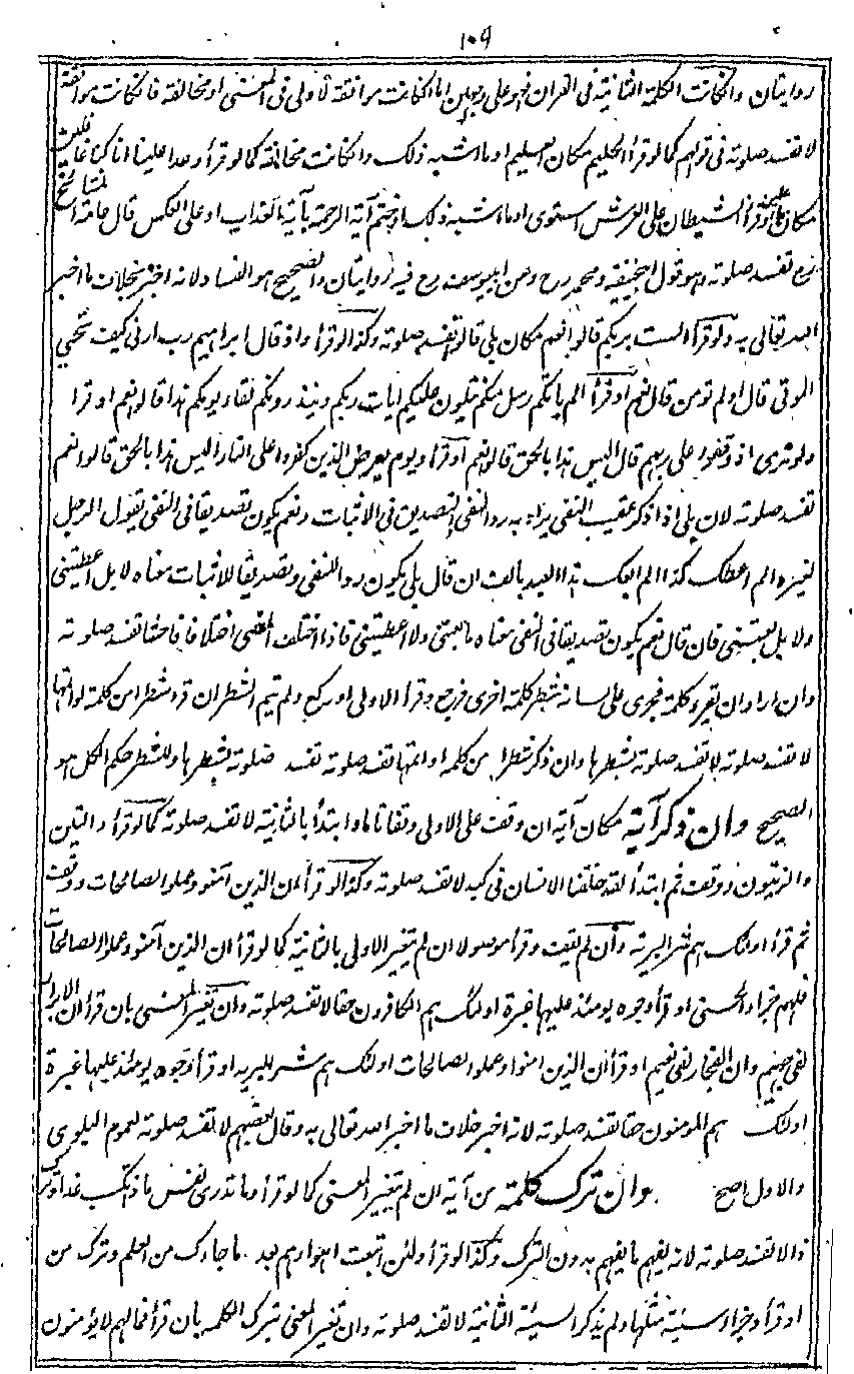 ١٠٩
روايتان وان كانت الكلمة الثانية فى القران فهو على وجهين اما ان كانت موافقة للاولى فى المعنى او مخالفة فان كانت موافقة
لا تفسد صلوته فى قولهم كما لو قرأ الحليم مكان العليم او ما اشبه ذلك وان كانت مخالفة كما لو قرأ وعدا علينا انا كنا غافلين
مكان فاعلين او قرأ الشيطان على العرش استوى او ما اشبه ذلك او ختم آية الرحمة بآية العذاب او على العكس قال عامة المشائخ
رح تفسد صلوته وهو قول ابيحنيفة ومحمد رح وعن ابيوسف رح فيه روايتان والصحيح هو الفساد لانه اخبر بخلاف ما اخبر
الله تعالى به ولو قرأ الست بربكم قالوا نعم مكان بلى قالوا تفسد صلوته وكذا لو قرأ واذ قال ابراهيم رب ارنى كيف تحيى
الموتى قال اولم تومن قال نعم او قرأ الم ياتكم رسل منكم يتلون عليكم ايات ربكم وينذرونكم لقاء يومكم هذا قالوا نعم او قرا
ولو ترى اذ وقفوا على ربهم قال اليس هذا بالحق قالوا نعم او قرأ ويوم يعرض الذين كفروا على النار اليس هذا بالحق قالوا نعم
تفسد صلوته لان بلى اذا ذكر عقيب النفى يراد به رد النفى التصديق فى الاثبات ونعم يكون تصديقا فى النفى يقول الرجل
لغيره الم اعطك كذا الم ابعك هذا العبد بالف ان قال بلى يكون رد اللنفى وتصديقا للاثبات معناه لا بل اعطيتنى
ولا بل بعتنى فان قال نعم يكون تصديقا فى النفى معناه ما بعتنى ولا اعطيتنى فاذا اختلف المعنى اختلافا فاحشا تفسد صلوته
وان اراد ان يقرء كلمة فجرى على لسانه شطر كلمة اخرى فرجع وقرأ الاولى او ركع ولم يتم الشطر ان قرء شطرا من كلمة لو اتمها
لا تفسد صلوته لا تفسد صلوته بشطرها وان ذكر شطرا من كلمة لو اتمها تفسد صلوته تفسد صلوته بشطرها وللشطر حكم الكل هو
الصحيح وان ذكر آية مكان آية ان وقف على الاولى وقفا تاما وابتدأ بالثانية لا تفسد صلوته كما لو قرأ والتين
والزيتون ووقف ثم ابتدأ لقد خلقنا الانسان فى كبد لا تفسد صلوته وكذا لو قرأ ان الذين آمنوا وعملوا الصالحات ووقف
ثم قرأ اولئك هم شر البرية وان لم يقف وقرأ موصولا ان لم تغير الاولى بالثانية كما لو قرأ ان الذين آمنوا وعملوا الصالحات
فلهم جزاء الحسنى او قرأ وجوه يومئذ عليها غبرة اولئك هم الكافرون حقا لا تفسد صلوته وان تغير المعنى بان قرأ ان الابرار
لفى جحيم وان الفجار لفى نعيم او قرأ ان الذين امنوا وعملوا الصالحات اولئك هم شر البريه او قرأ وجوه يومئذ عليها غبرة
اولئك هم المومنون حقا تفسد صلوته لانه اخبر خلاف ما اخبر الله تعالى به وقال بعضهم لا تفسد صلوته لعموم البلوى
والاول اصح وان ترك كلمة من آية ان لم تغير المعنى كما لو قرأ وما تدرى نفس ماذا تكسب غدا وترك
ذا لا تفسد صلوته لانه يفهم ما يفهم بدون الترك وكذا لو قرأ ولئن اتبعت اهواءهم بعد ما جاءك من العلم وترك من
او قرأ وجزاء سيئة مثلها ولم يذكر السيئة الثانية لا تفسد صلوته وان تغير المعنى بترك الكلمه بان قرأ فما لهم لا يؤمنون